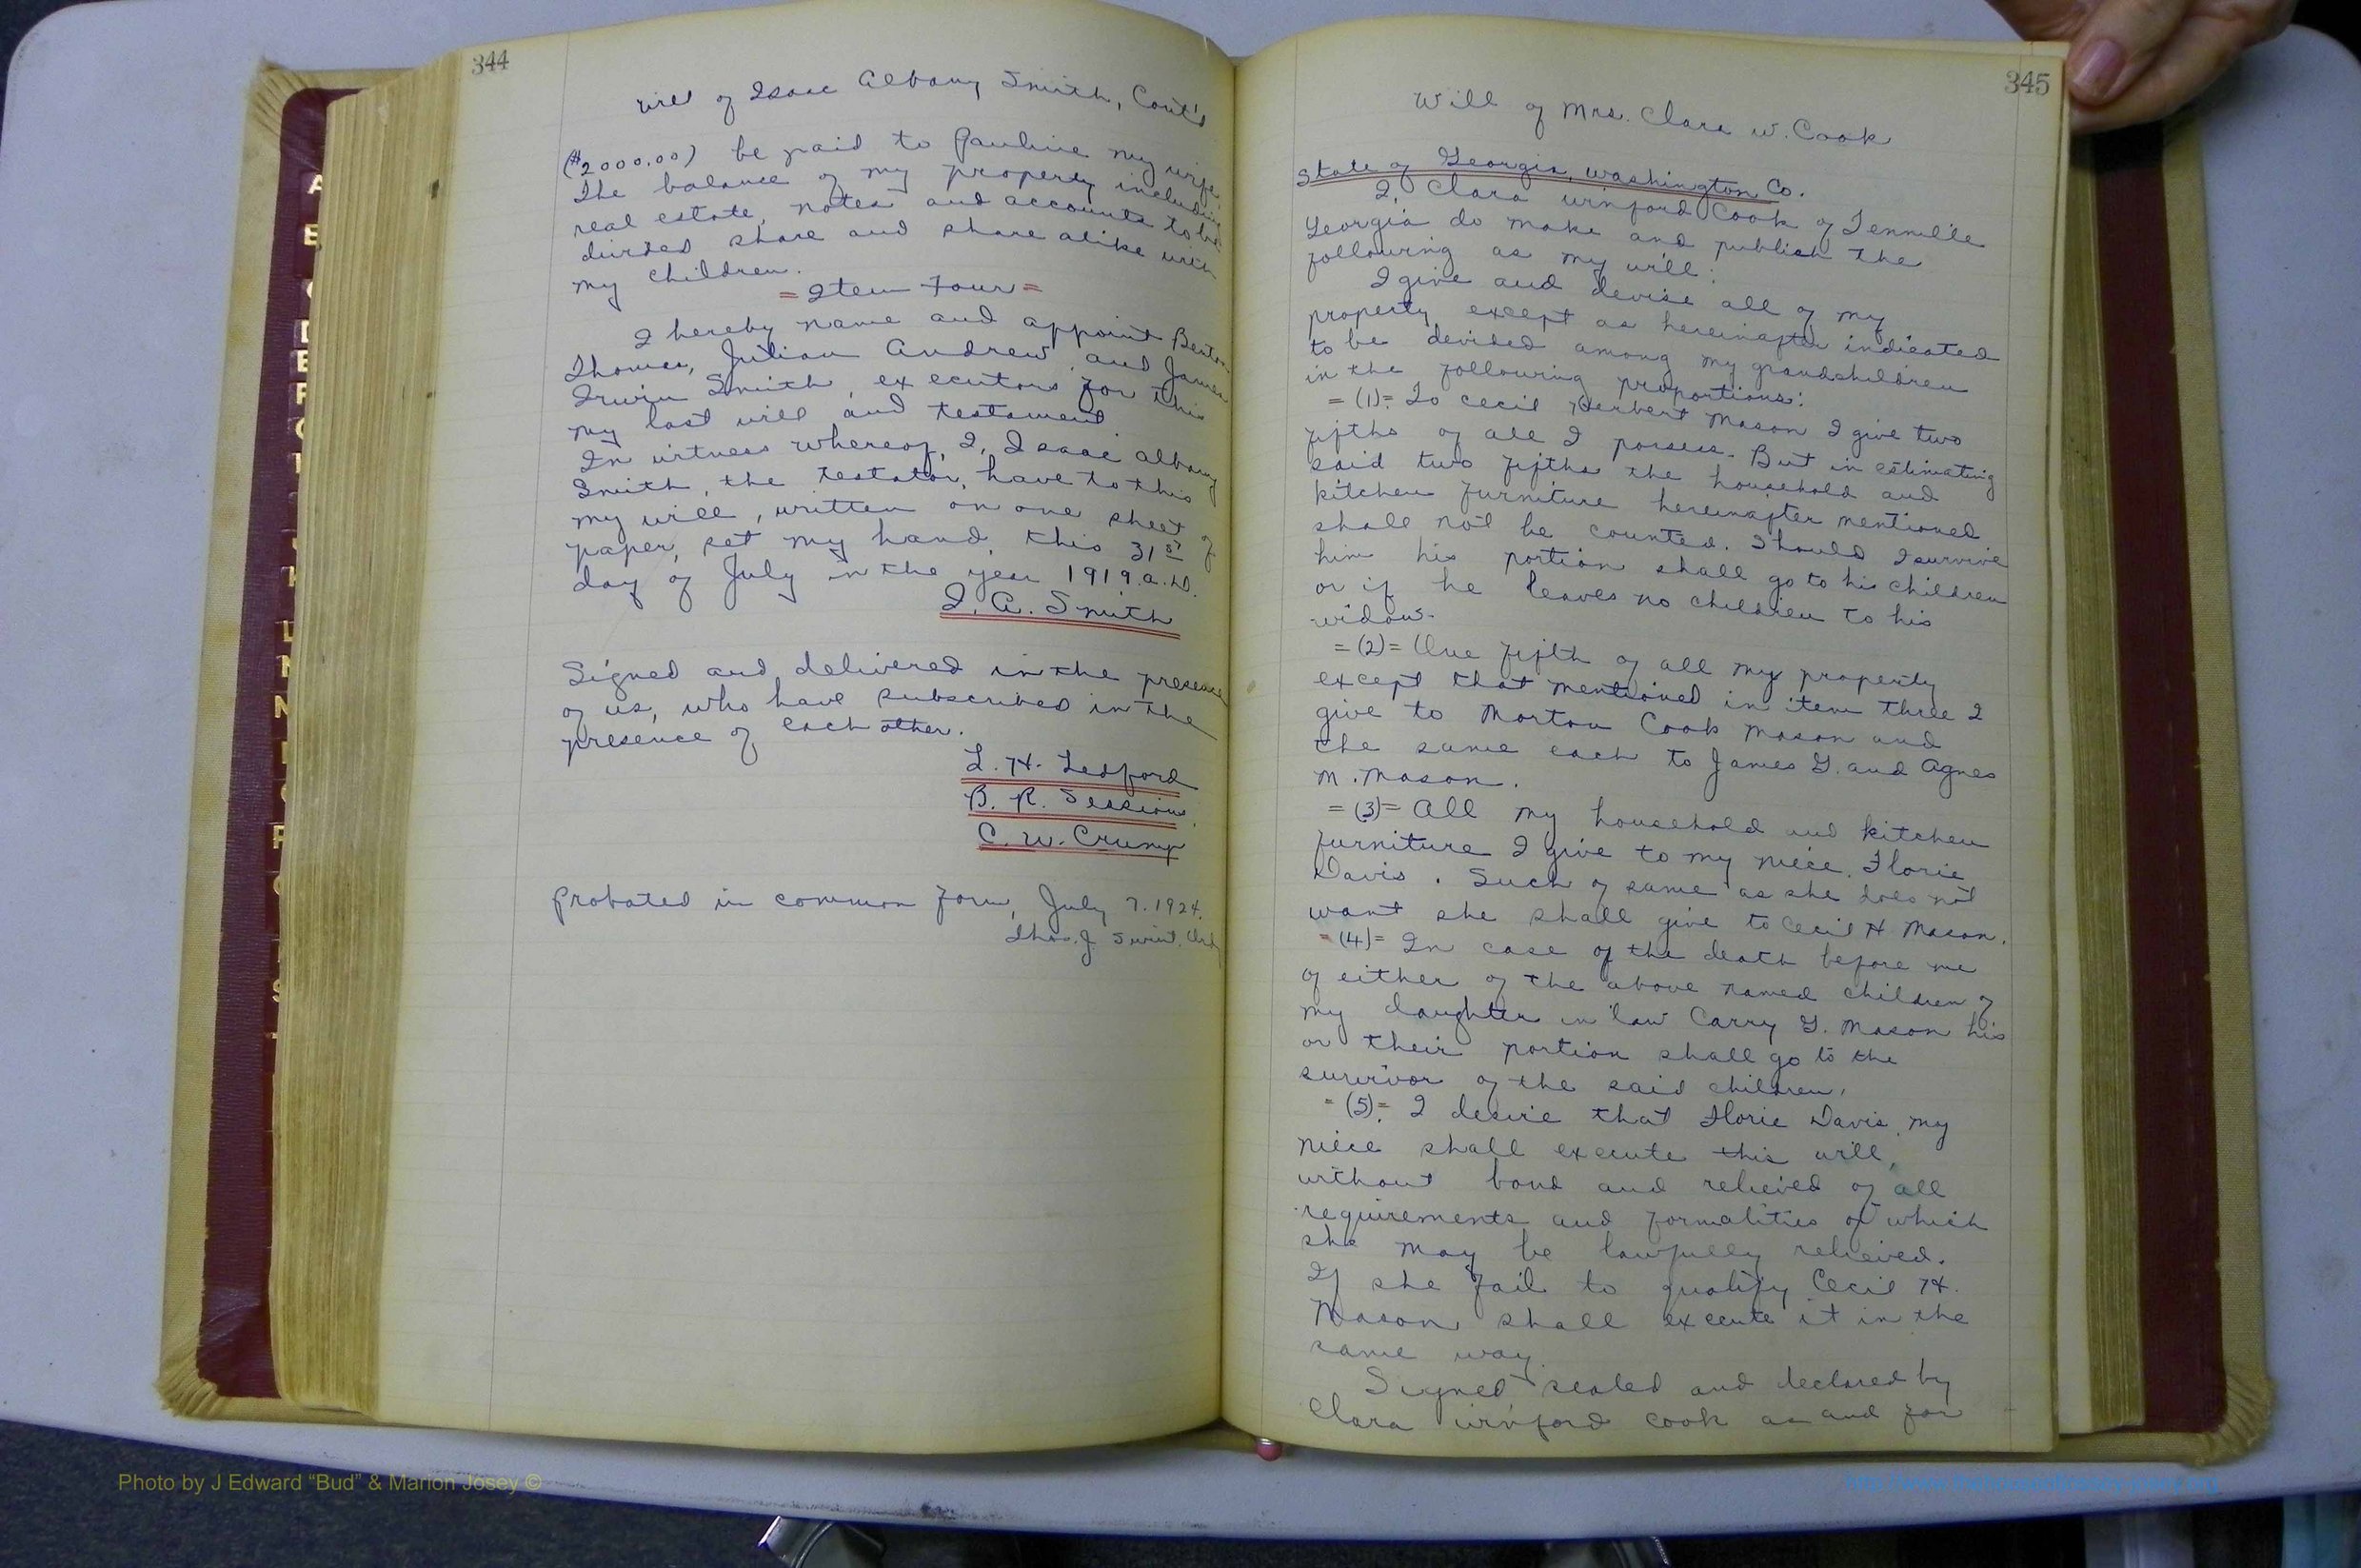 344
Will of Isaac Albany Smith, Cont'd
($2000.00) be paid to Pauline my wife.
The balance of my property including
real estate, notes and accounts to be
divided share and share alike with
my children.
= Item Four =
I hereby name and appoint Benton
Thomas, Julian Andrew, and James
Irwin Smith, executors for this
my last will and testament
In witness whereof, I, Isaac Albany
Smith, the testator, have to this
my will, written on one sheet of
paper, set my hand, this 31st
day of July in the year 1919. A.D.
I. A. Smith
Signed and delivered in the presence
of us, who have subscribed in the
presence of each other.
L. H. Ledford
B. R. Sessions
C. W. Crump
Probated in common form, July 7. 1924.
Thos. J. Swint. Ord
345
Will of Mrs. Clara W. Cook
State of Georgia, Washington Co.
I, Clara Winford Cook of Tennille
Georgia do make and publish the
following as my will:
I give and devise all of my
property except as hereinafter indicated
to be devided among my grandchildren
in the following proportions:
= (1) = To Cecil Herbert Mason I give two
fifths of all I possess. But in estimating
said two fifths the household and
kitchen furniture hereinafter mentioned
shall not be counted. Should I survive
him his portion shall go to his children
or if he leaves no children to his
widow.
= (2) = One fifth of all my property
except that mentioned in item three I
give to Morton Cook Mason and
the same each to James G. and Agnes
M. Mason.
= (3) = All my household and kitchen
furniture I give to my niece, Florie
Davis. Such of same as she does not
want she shall give to Cecil H Mason.
= (4) = In case of the death before me
of either of the above named children of
my daughter in law Carry G. Mason his
or their portion shall go to the
survivor of the said children.
= (5) = I desire that Florie Davis, my
niece shall execute this will,
without bond and relieved of all
requirements and formalities of which
she may be lawfully relieved.
If she fail to qualify Cecil H.
Mason shall execute it in the
same way.
Signed sealed and declared by
Clara Winford Cook as and for
Photo by J Edward “Bud” & Marion Josey ©